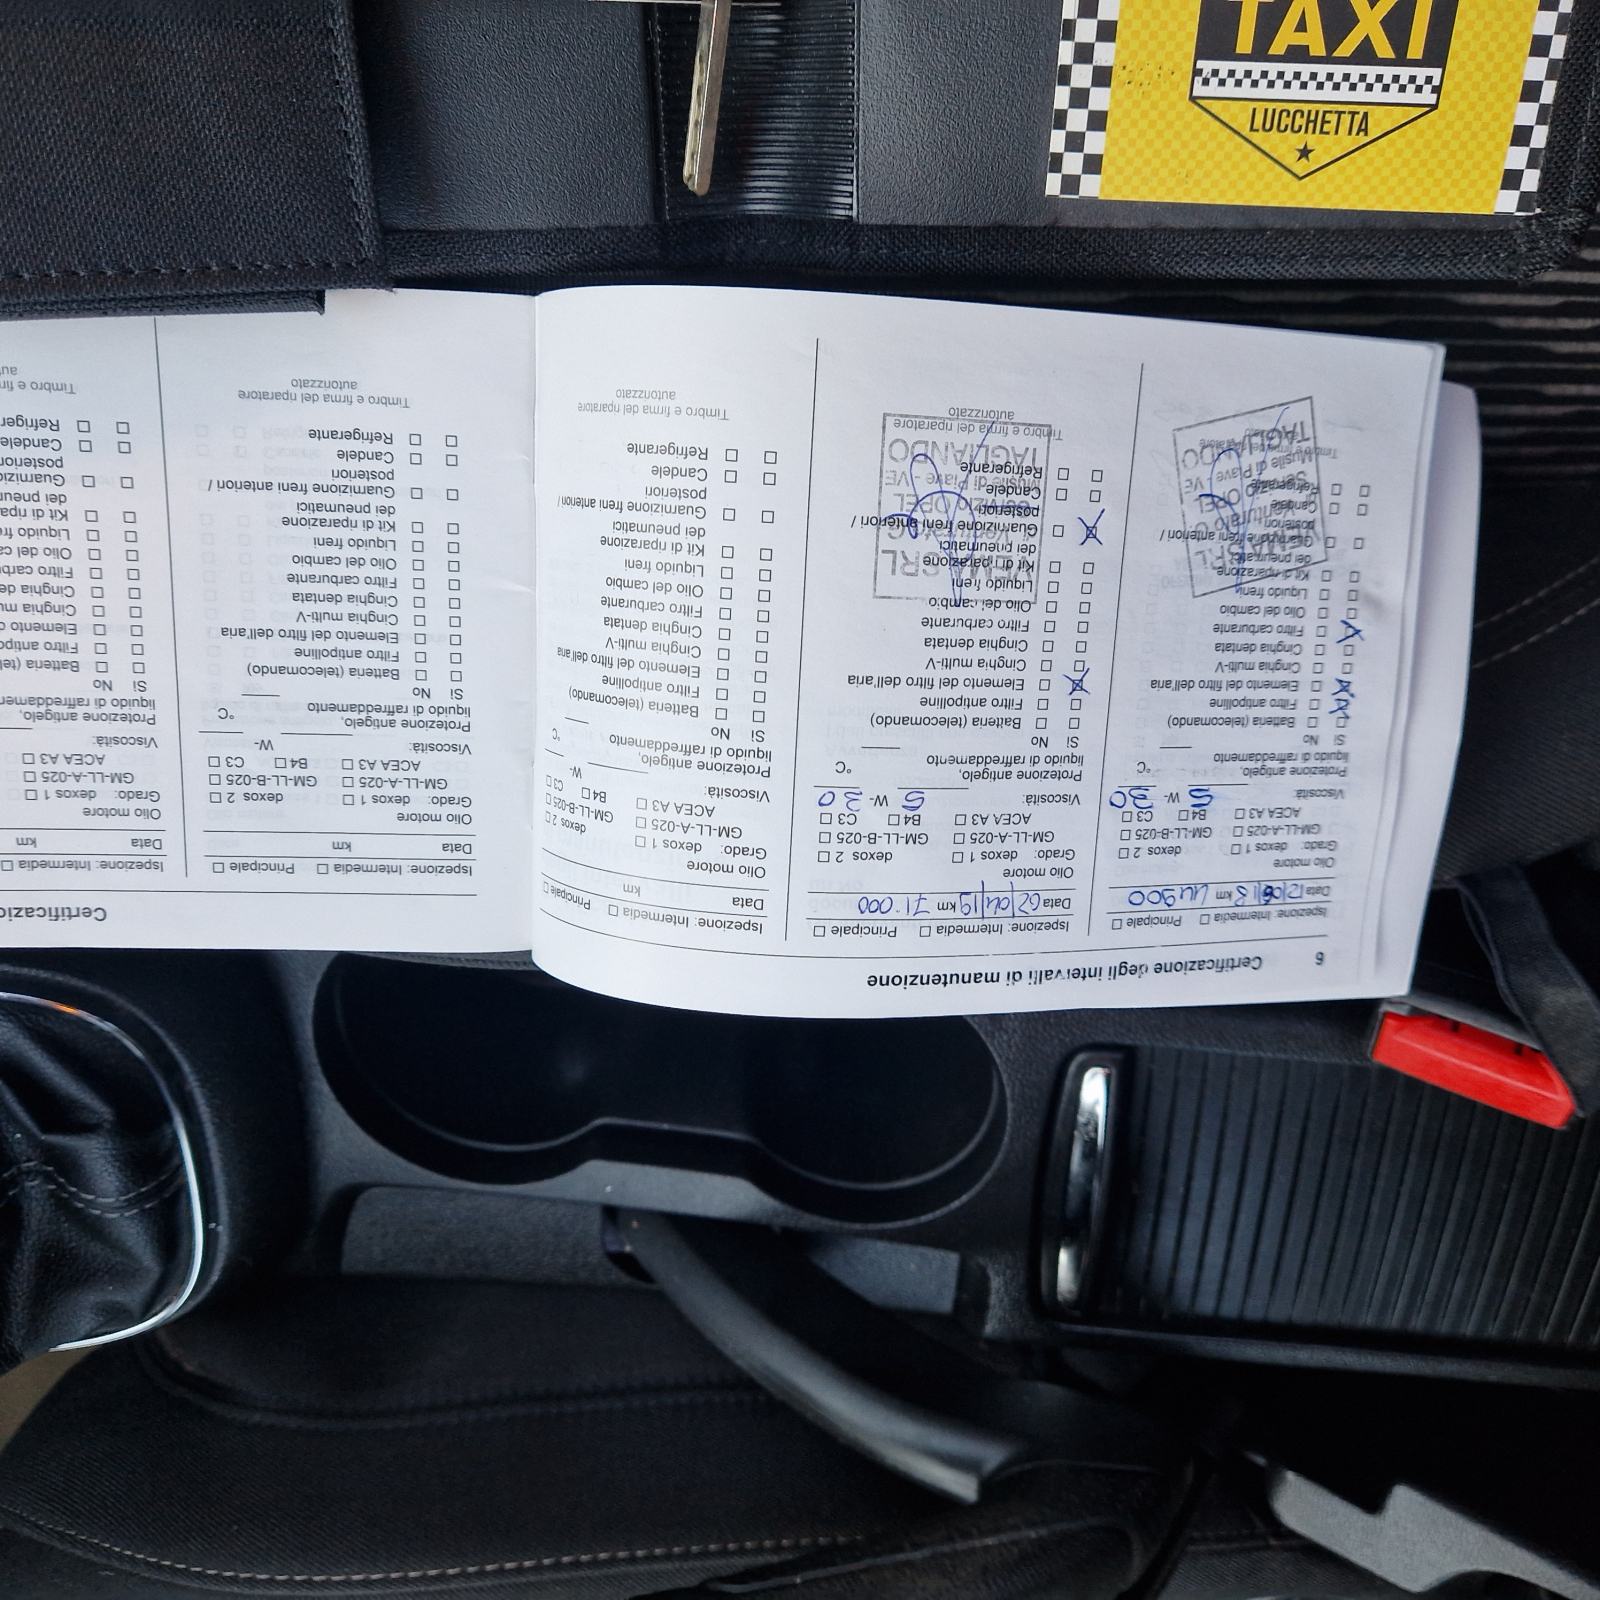 TAXI
LUCCHETTA
6 Certificazione degli intervalli di manutenzione
Ispezione: Intermedia ☐ Principale ☐
Data km 44900
Olio motore
Grado: dexos 1 ☐ dexos 2 ☐
GM-LL-A-025 ☐ GM-LL-B-025 ☐
ACEA A3 ☐ B4 ☐ C3 ☐
Viscosità: 5 W- 30
Protezione antigelo,
liquido di raffreddamento °C
Sì No
Batteria (telecomando)
Filtro antipolline
Elemento del filtro dell'aria
Cinghia multi-V
Cinghia dentata
Filtro carburante
Olio del cambio
Liquido freni
Kit di riparazione
dei pneumatici
Guarnizione freni anteriori /
posteriori
Candele
Refrigerante
Ispezione: Intermedia ☐ Principale ☐
Data 02/04/19 km 71.000
Olio motore
Grado: dexos 1 ☐ dexos 2 ☐
GM-LL-A-025 ☐ GM-LL-B-025 ☐
ACEA A3 ☐ B4 ☐ C3 ☐
Viscosità: 5 W- 30
Protezione antigelo,
liquido di raffreddamento °C
Sì No
Batteria (telecomando)
Filtro antipolline
Elemento del filtro dell'aria
Cinghia multi-V
Cinghia dentata
Filtro carburante
Olio del cambio
Liquido freni
Kit di riparazione
dei pneumatici
Guarnizione freni anteriori /
posteriori
Candele
Refrigerante
Timbro e firma del riparatore
autorizzato
VEMA SRL
Servizio OPEL
Musile di Piave - VE
TAGLIANDO
Ispezione: Intermedia ☐ Principale ☐
Data km
Olio motore
Grado: dexos 1 ☐ dexos 2 ☐
GM-LL-A-025 ☐ GM-LL-B-025 ☐
ACEA A3 ☐ B4 ☐ C3 ☐
Viscosità: W-
Protezione antigelo,
liquido di raffreddamento °C
Sì No
Batteria (telecomando)
Filtro antipolline
Elemento del filtro dell'aria
Cinghia multi-V
Cinghia dentata
Filtro carburante
Olio del cambio
Liquido freni
Kit di riparazione
dei pneumatici
Guarnizione freni anteriori /
posteriori
Candele
Refrigerante
Timbro e firma del riparatore
autorizzato
Certificazio
Ispezione: Intermedia ☐ Principale ☐
Data km
Olio motore
Grado: dexos 1 ☐ dexos 2 ☐
GM-LL-A-025 ☐ GM-LL-B-025 ☐
ACEA A3 ☐ B4 ☐ C3 ☐
Viscosità: W-
Protezione antigelo,
liquido di raffreddamento °C
Sì No
Batteria (telecomando)
Filtro antipolline
Elemento del filtro dell'aria
Cinghia multi-V
Cinghia dentata
Filtro carburante
Olio del cambio
Liquido freni
Kit di riparazione
dei pneumatici
Guarnizione freni anteriori /
posteriori
Candele
Refrigerante
Timbro e firma del riparatore
autorizzato
Ispezione: Intermedia ☐
Data km
Olio motore
Grado: dexos 1 ☐
GM-LL-A-025 ☐
ACEA A3 ☐
Viscosità:
Protezione antigelo,
liquido di raffreddamen
Sì No
Batteria (tele
Filtro antipo
Elemento d
Cinghia mu
Cinghia de
Filtro carbu
Olio del ca
Liquido fre
Kit di ripa
dei pneum
Guarnizio
posteriori
Candele
Refriger
Timbro e firm
au